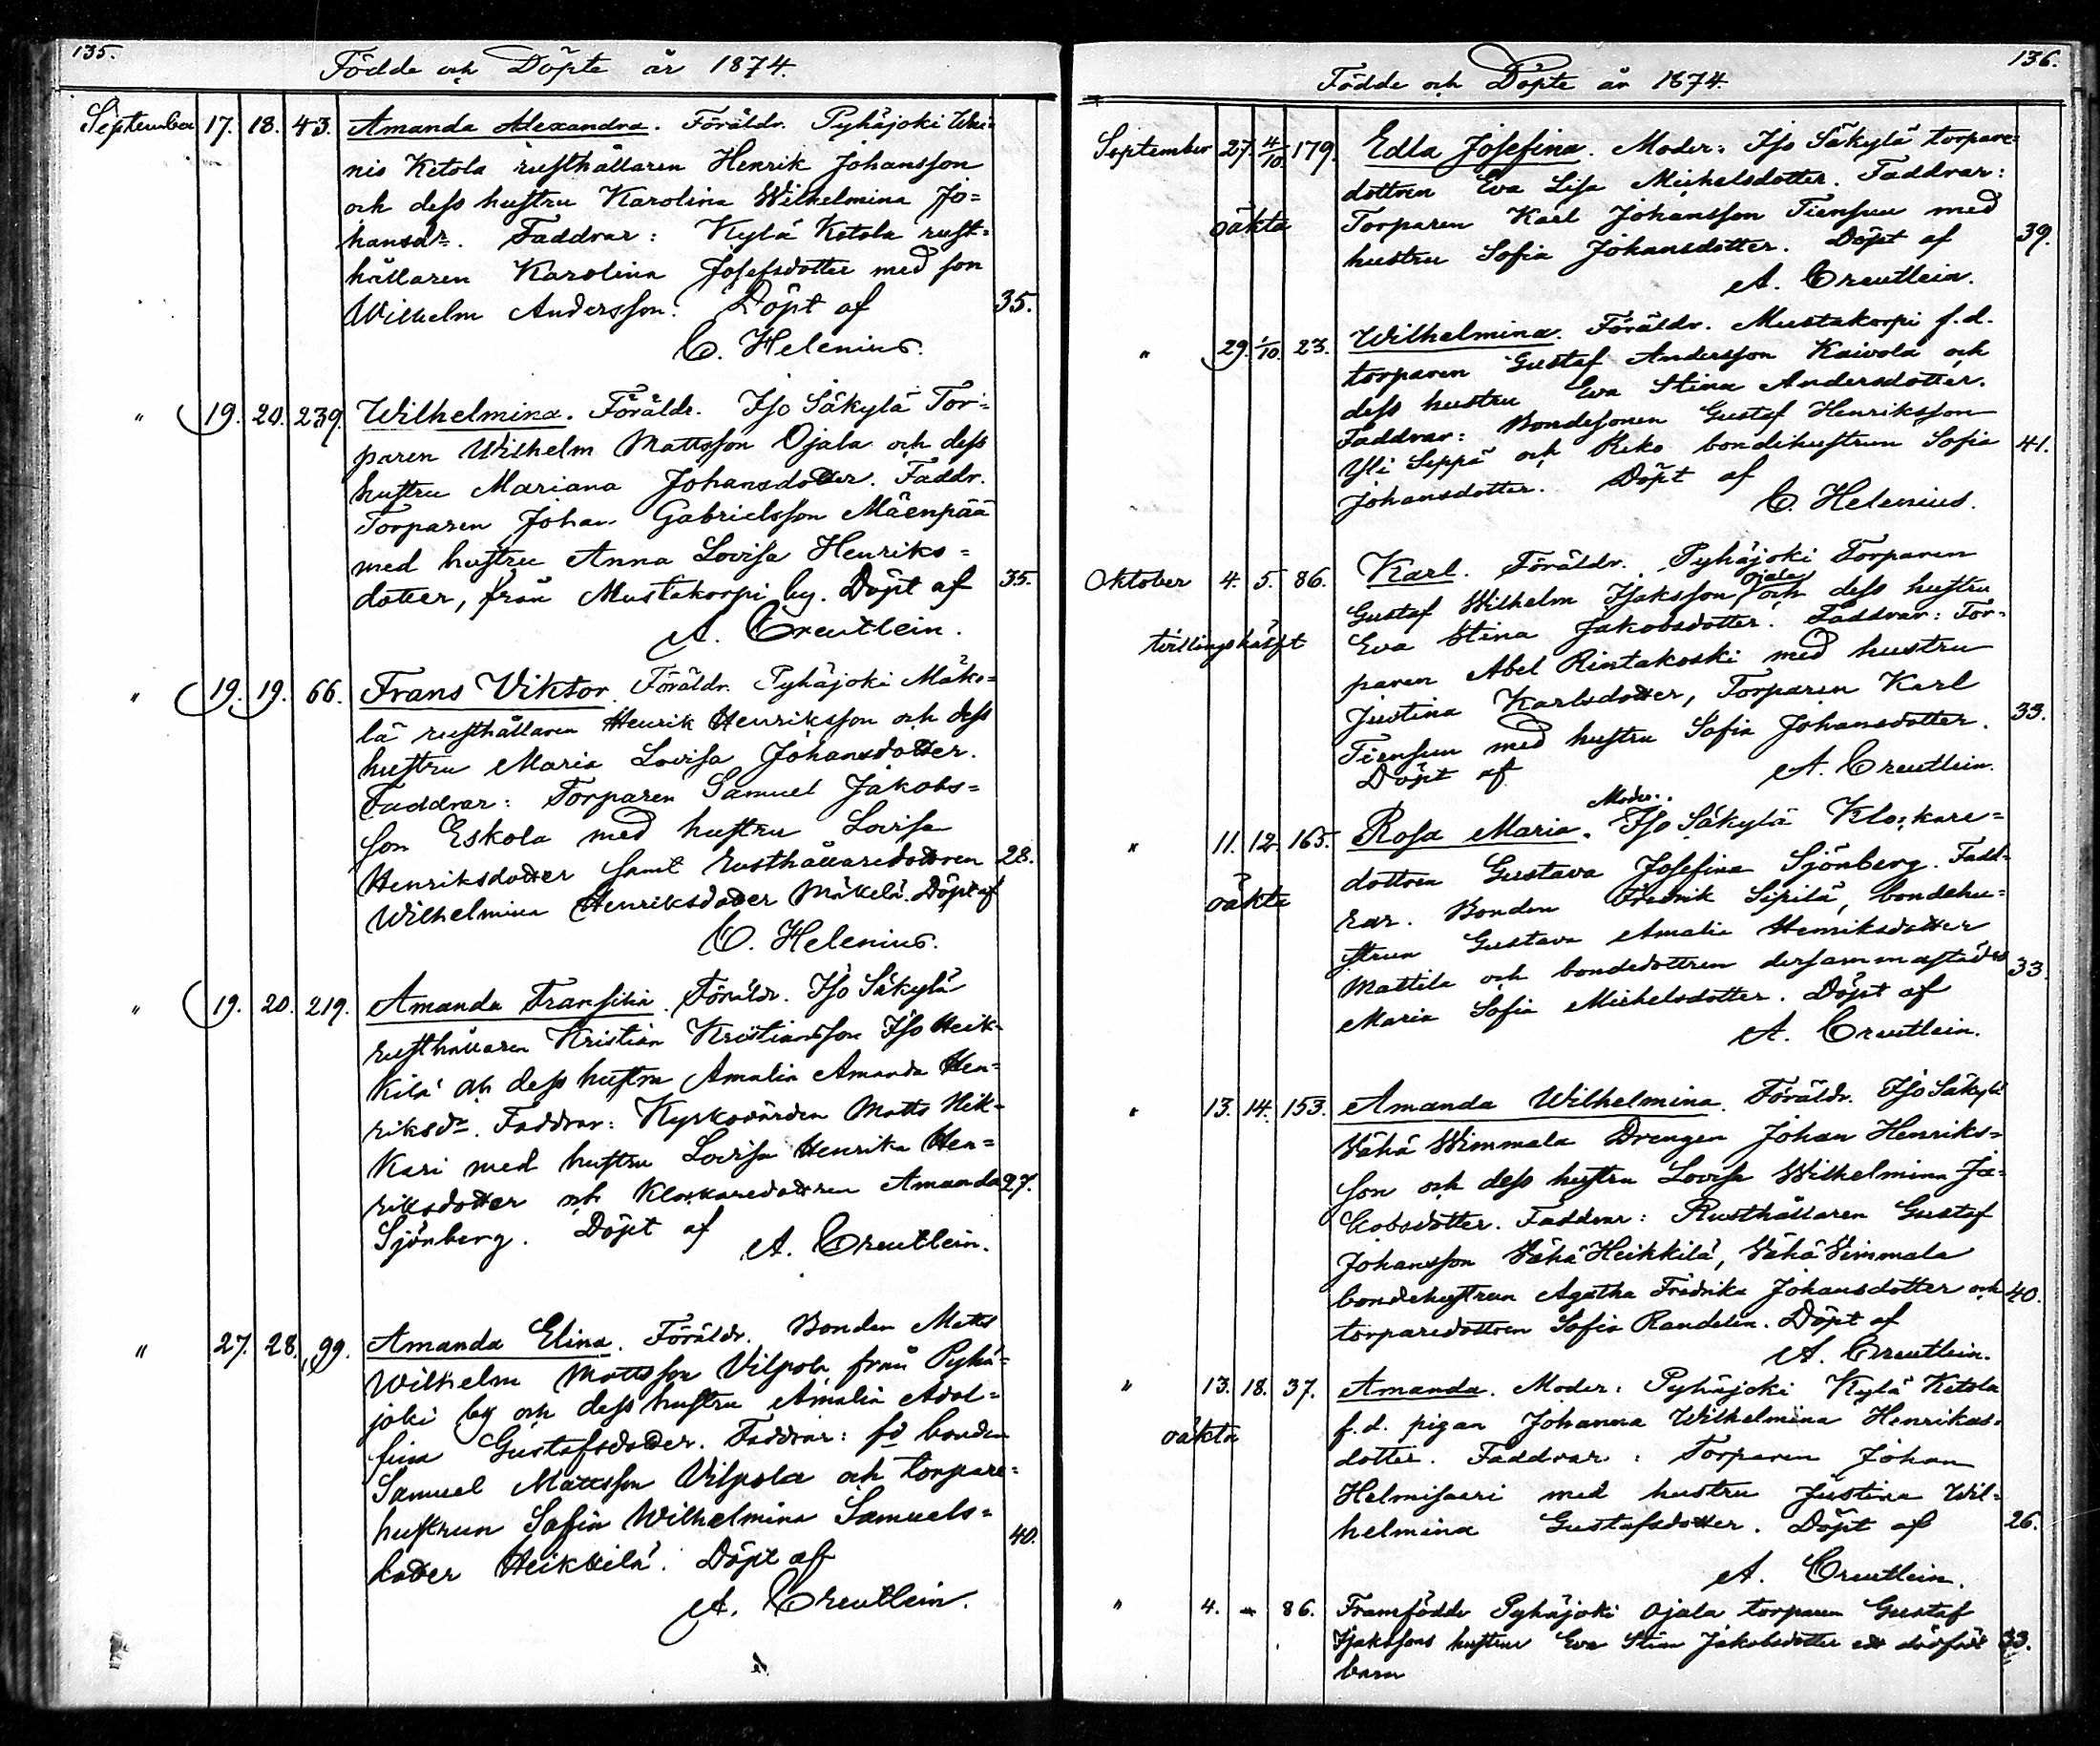 135.
Födde och Döpte år 1874.
September 17. 18. 43. Amanda Alexandra. Föräldr. Pyhäjoki Wai=
nio Ketola rusthållaren Henrik Johansson
och dess hustru Karolina Wilhelmina Jo=
hansdr. Faddrar: Kylä Ketola rust=
hållaren Karolina Josefsdotter med son
Wilhelm Andersson. Döpt af 35.
C. Helenius.
" 19. 20. 239. Wilhelmina. Föräldr. Iso Säkylä Tor=
paren Wilhelm Mattsson Ojala och dess
hustru Mariana Johansdotter. Faddr.
Torparen Johan Gabrielsson Mäenpää
med hustru Anna Lovisa Henriks=
dotter, från Mustakorpi by. Döpt af 35.
A. Creutlein.
" 19. 19. 66. Frans Viktor. Föräldr. Pyhäjoki Mäke=
lä rusthållaren Henrik Henriksson och dess
hustru Maria Lovisa Johansdotter.
Faddrar: Torparen Samuel Jakobs=
son Eskola med hustru Lovisa
Henriksdotter samt Rusthållaredottren 28.
Wilhelmina Henriksdotter Mäkelä. Döpt af
C. Helenius.
" 19. 20. 219. Amanda Fransiska. Föräldr. Iso Säkylä
rusthållaren Kristian Kristiansson Iso Heik=
kilä och dess hustru Amalia Amanda Hen=
riksdr. Faddrar: Kyrkovärden Matts Hik=
kari med hustru Lovisa Henrika Hen=
riksdotter och Klockaredottren Amanda 27.
Sjönberg. Döpt af
A. Creutlein.
" 27. 28. 99. Amanda Elina. Föräldr. Bonden Matts
Wilhelm Mattsson Vilpola från Pyhä=
joki by och dess hustru Amalia Adol=
fina Gustafsdotter. Faddrar: fd bonden
Samuel Mattsson Vilpola och torpare=
hustrun Sofia Wilhelmina Samuels=
dotter Heikkilä. Döpt af 40.
A. Creutlein.
136.
Födde och Döpte år 1874.
September 27. 4/10. 179. Edla Josefina. Moder: Iso Säkylä torpare=
dottren Eva Lisa Michelsdotter. Faddrar:
oäkta Torparen Karl Johansson Tiensuu med
hustru Sofia Johansdotter. Döpt af 39.
A. Creutlein.
" 29. 1/10. 23. Wilhelmina. Föräldr. Mustakorpi f.d.
torparen Gustaf Andersson Kaivola och
dess hustru Eva Stina Andersdotter.
Faddrar: Bondesonen Gustaf Henriksson
Yli Seppä och Reko bondehustrun Sofia 41.
Johansdotter. Döpt af
C. Helenius.
Oktober 4. 5. 86. Karl. Föräldr. Pyhäjoki Torparen
Gustaf Wilhelm Isaksson Ojala och dess hustru
tvillingshälft Eva Stina Jakobsdotter. Faddrar: Tor=
paren Abel Rintakoski med hustru
Justina Karlsdotter, Torparen Karl
Tiensuu med hustru Sofia Johansdotter. 33.
Döpt af A. Creutlein.
" 11. 12. 165. Rosa Maria. Moder: Iso Säkylä Klockare=
dottren Gustava Josefina Sjönberg. Fadd=
oäkta rar. Bonden Fredrik Sipilä, bondehu=
strun Gustava Amalia Henriksdotter
Mattila och bondedottren dersammastädes 33.
Maria Sofia Michelsdotter. Döpt af
A. Creutlein.
" 13. 14. 153. Amanda Wilhelmina. Föräldr. Iso Säkylä
Vähä Wimmala Drengen Johan Henriks=
son och dess hustru Lovisa Wilhelmina Ja=
kobsdotter. Faddrar: Rusthållaren Gustaf
Johansson Vähä Heikkilä, Vähä Vimmala
bondehustrun Agatha Fredrika Johansdotter och 40.
torparedottren Sofia Randelin. Döpt af
A. Creutlein.
" 13. 18. 37. Amanda. Moder: Pyhäjoki Kylä Ketola
oäkta f.d. pigan Johanna Wilhelmina Henriks=
dotter. Faddrar: Torparen Johan
Helmisaari med hustru Justina Wil=
helmina Gustafsdotter. Döpt af 26.
A. Creutlein.
" 4. - 86. Framfödde Pyhäjoki Ojala torparen Gustaf
Isakssons hustru Eva Stina Jakobsdotter ett dödfödt 33.
barn